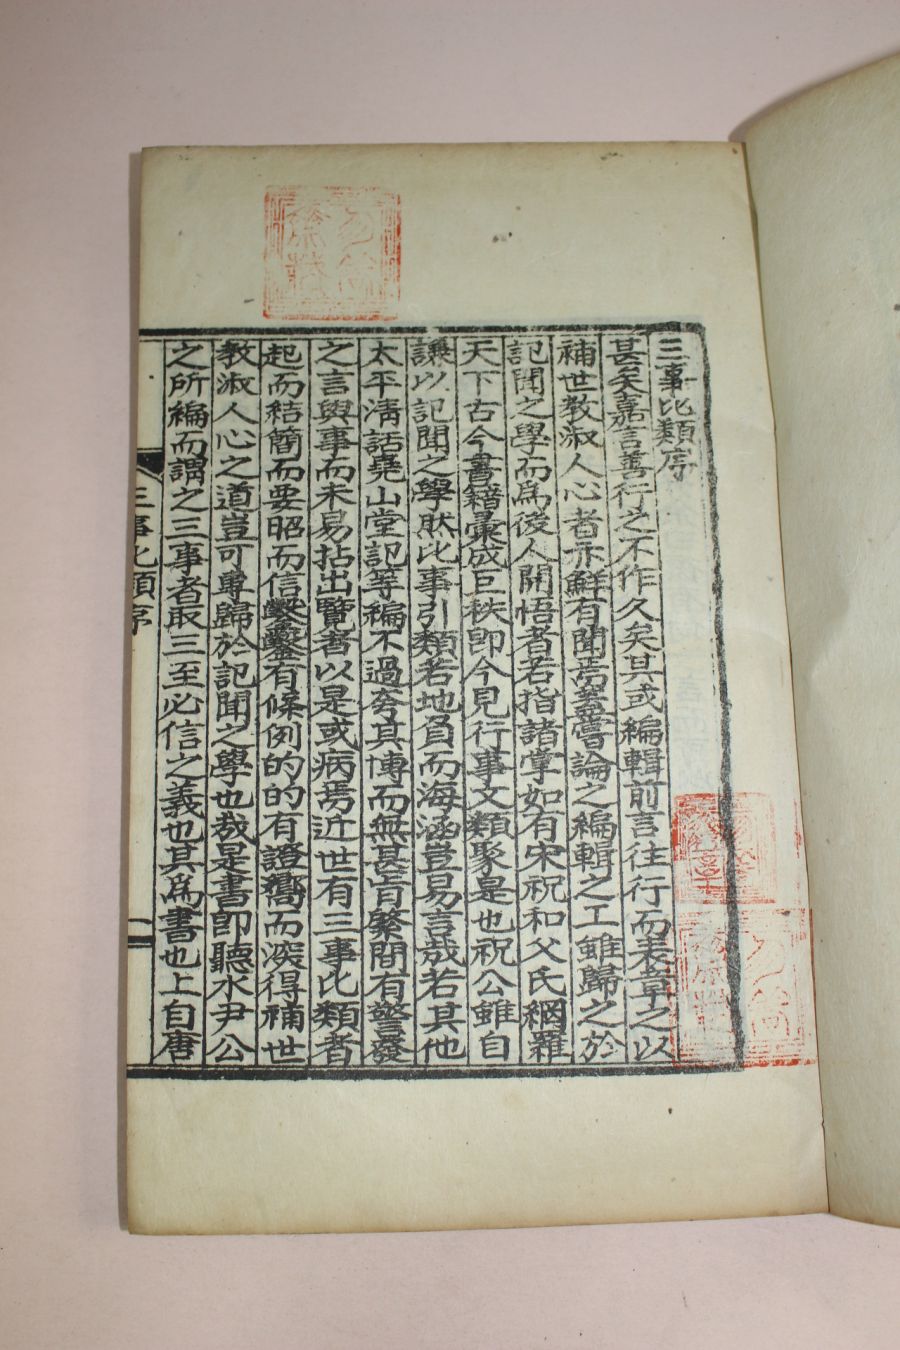 三事比類序
甚矣嘉言善行之不作久矣其或編輯前言往行而表章之以
補世教淑人心者亦鮮有聞焉蓋嘗論之編輯之工雖歸之於
記聞之學而爲後人開悟者若指諸掌如有宋祝和父氏網羅
天下古今書籍彙成巨秩卽今見行事文類聚是也祝公雖自
謙以記聞之學然比事引類若地負而海涵豈易言哉若其他
太平淸話堯山堂記等編不過夸其博而無甚旨繁間有警發
之言與事而未易拈出覽者以是或病焉近世有三事比類者
起而結簡而要昭而信鑿鑿有條例的的有證嚮而深得補世
教淑人心之道豈可專歸於記聞之學也哉是書卽聽水尹公
之所編而謂之三事者取三至必信之義也其爲書也上自唐
三事比類序